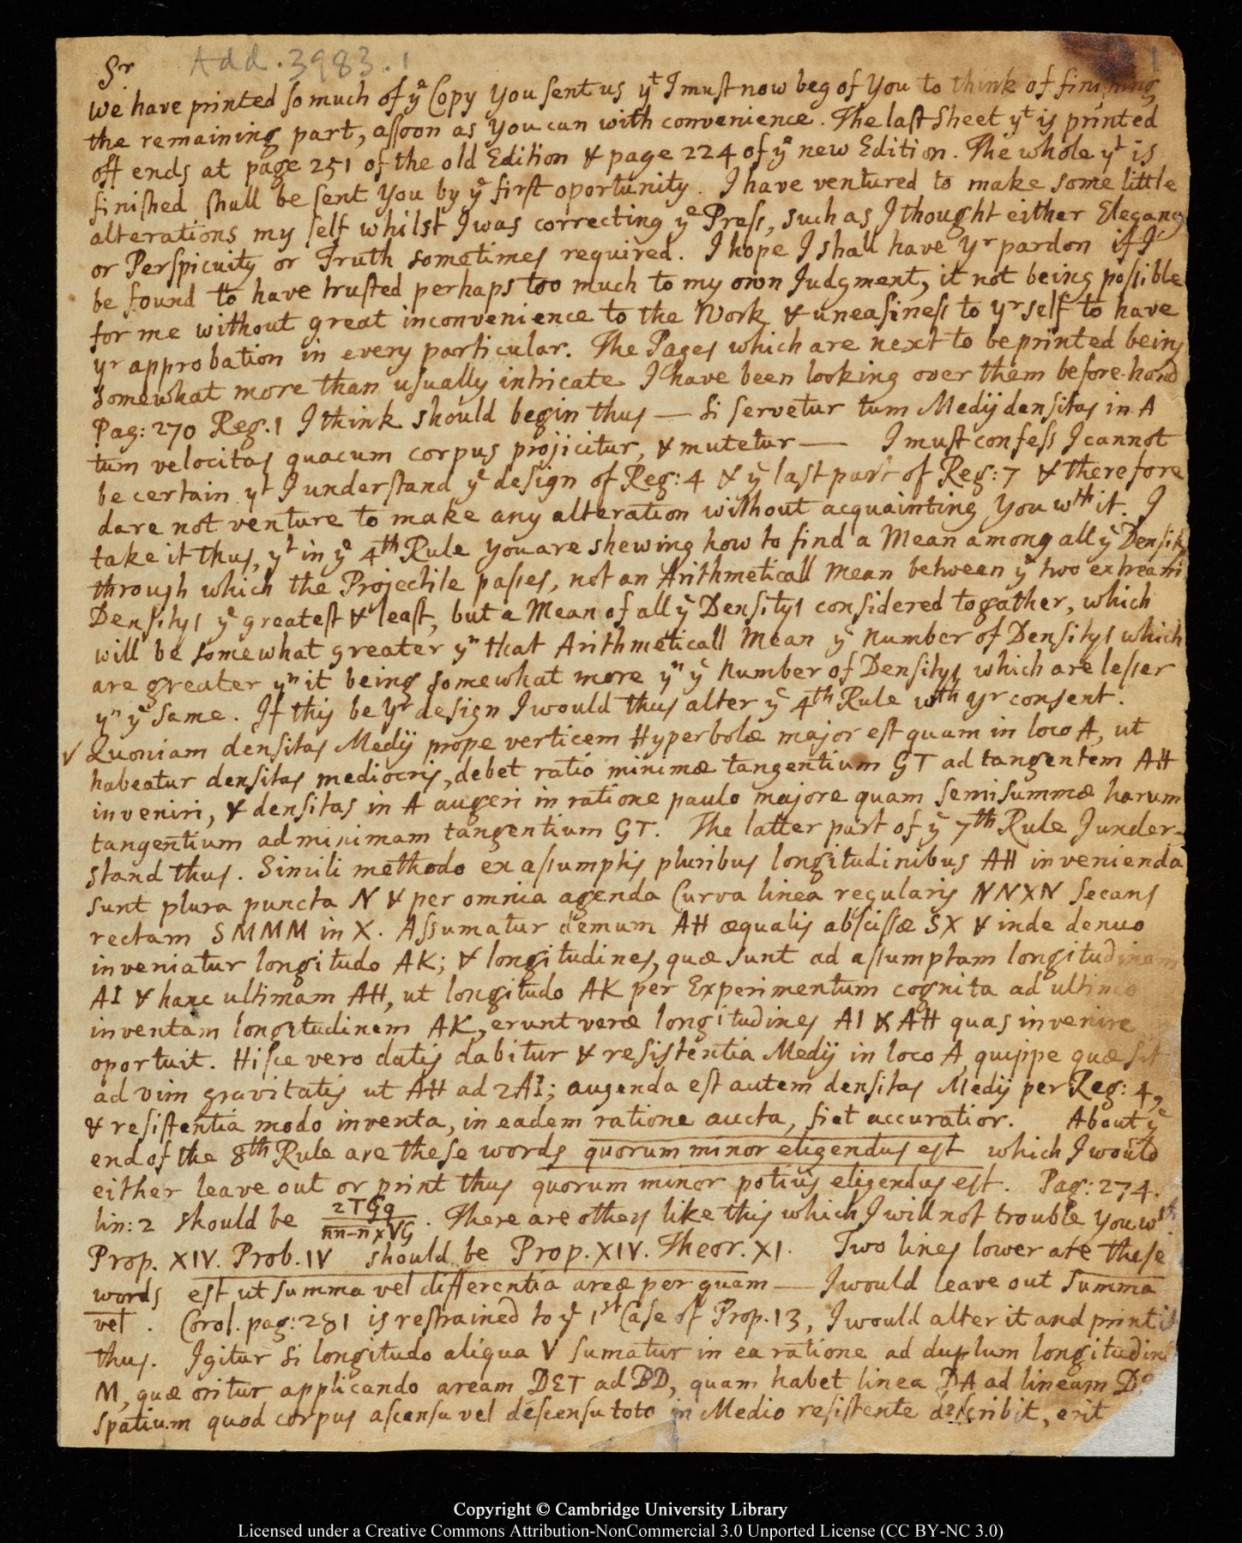 Add. 3983. 1
1
Sr
We have printed so much of ye Copy you sent us yt I must now beg of You to think of finishing
the remaining part, assoon as You can with convenience. The last Sheet yt is printed
off ends at page 251 of the old Edition & page 224 of ye new Edition. The whole yt is
finished shall be sent You by ye first oportunity. I have ventured to make some little
alterations my self whilst I was correcting ye Press, such as I thought either Elegancy
or Perspicuity or Truth sometimes required. I hope I shall have Yr pardon if I
be found to have trusted perhaps too much to my own Judgment, it not being possible
for me without great inconvenience to the Work & uneasiness to yr self to have
yr approbation in every particular. The Pages which are next to be printed being
somewhat more than usually intricate I have been looking over them before-hand
Pag: 270 Reg. 1 I think should begin thus — Si servetur tum Medij densitas in A
tum velocitas quacum corpus projicitur, & mutetur — I must confess I cannot
be certain yt I understand ye design of Reg: 4 & ye last part of Reg: 7 & therefore
dare not venture to make any alteration without acquainting You wth it. I
take it thus, yt in ye 4th Rule You are shewing how to find a Mean among all ye Densitys
through which the Projectile passes, not an Arithmeticall Mean between ye two extream
Densitys ye greatest & least, but a Mean of all ye Densitys considered togather, which
will be somewhat greater yn that Arithmeticall Mean ye number of Densitys which
are greater yn it being somewhat more yn ye number of Densitys which are lesser
yn ye same. If this be Yr design I would thus alter ye 4th Rule wth yr consent.
√ Quoniam densitas Medij prope verticem Hyperbolæ major est quam in loco A, ut
habeatur densitas mediocris, debet ratio minimæ tangentium GT ad tangentem AH
inveniri, & densitas in A augeri in ratione paulo majore quam semisummæ harum
tangentium ad minimam tangentium GT. The latter part of ye 7th Rule I under-
stand thus. Simili methodo ex assumptis pluribus longitudinibus AH invenienda
sunt plura puncta N & per omnia agenda Curva linea regularis NNXN secans
rectam SMMM in X. Assumatur demum AH æqualis abscissæ SX & inde denuo
inveniatur longitudo AK; & longitudines, quæ sunt ad assumptam longitudinem
AI & hanc ultimam AH, ut longitudo AK per Experimentum cognita ad ultimo
inventam longitudinem AK, erunt veræ longitudines AI & AH quas invenire
oportuit. Hisce vero datis dabitur & resistentia Medij in loco A, quippe quæ sit
ad vim gravitatis ut AH ad 2AI; augenda est autem densitas Medij per Reg: 4,
& resistentia modo inventa, in eadem ratione aucta, fiet accuratior. About ye
end of the 8th Rule are these words quorum minor eligendus est which I would
either leave out or print thus quorum minor potius eligendus est. Pag: 274.
lin: 2 should be 2TGq / nn-n×VG. There are others like this which I will not trouble You wth
Prop. XIV. Prob. IV should be Prop. XIV. Theor. XI. Two lines lower are these
words est ut summa vel differentia areæ per quam — I would leave out summa
vel. Corol. pag: 281 is restrained to ye 1st Case of Prop. 13, I would alter it and print it
thus. Igitur si longitudo aliqua V sumatur in ea ratione ad duplum longitudinis
M, quæ oritur applicando aream DET ad BD, quam habet linea DA ad lineam
spatium quod corpus ascensu vel descensu toto in Medio resistente describit, erit
Copyright © Cambridge University Library
Licensed under a Creative Commons Attribution-NonCommercial 3.0 Unported License (CC BY-NC 3.0)